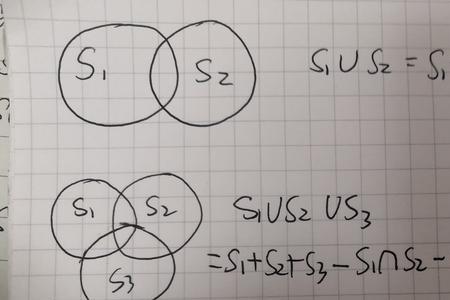 S1 S2 S1 ∪ S2 = S1
S1 S2 S1∪S2 ∪S3
S3 =S1+S2+S3-S1∩S2-